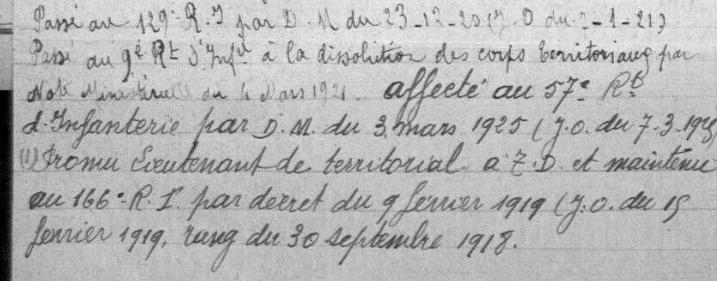 Passé au 129e R. I par D. M du 23-12-20 (J. O du 2-1-21)
Passé au 9e Rt d'Infie à la dissolution des corps territoriaux par
Note Ministérielle du 4 Mars 1921. affecté au 57e Rt
d'Infanterie par D. M. du 3 mars 1925 (J.O. du 7-3.1925)
(1) Promu Lieutenant de territorial à T. D. et maintenu
au 166e R. I. par decret du 9 fevrier 1919 (J.O. du 15
fevrier 1919, rang du 30 septembre 1918.